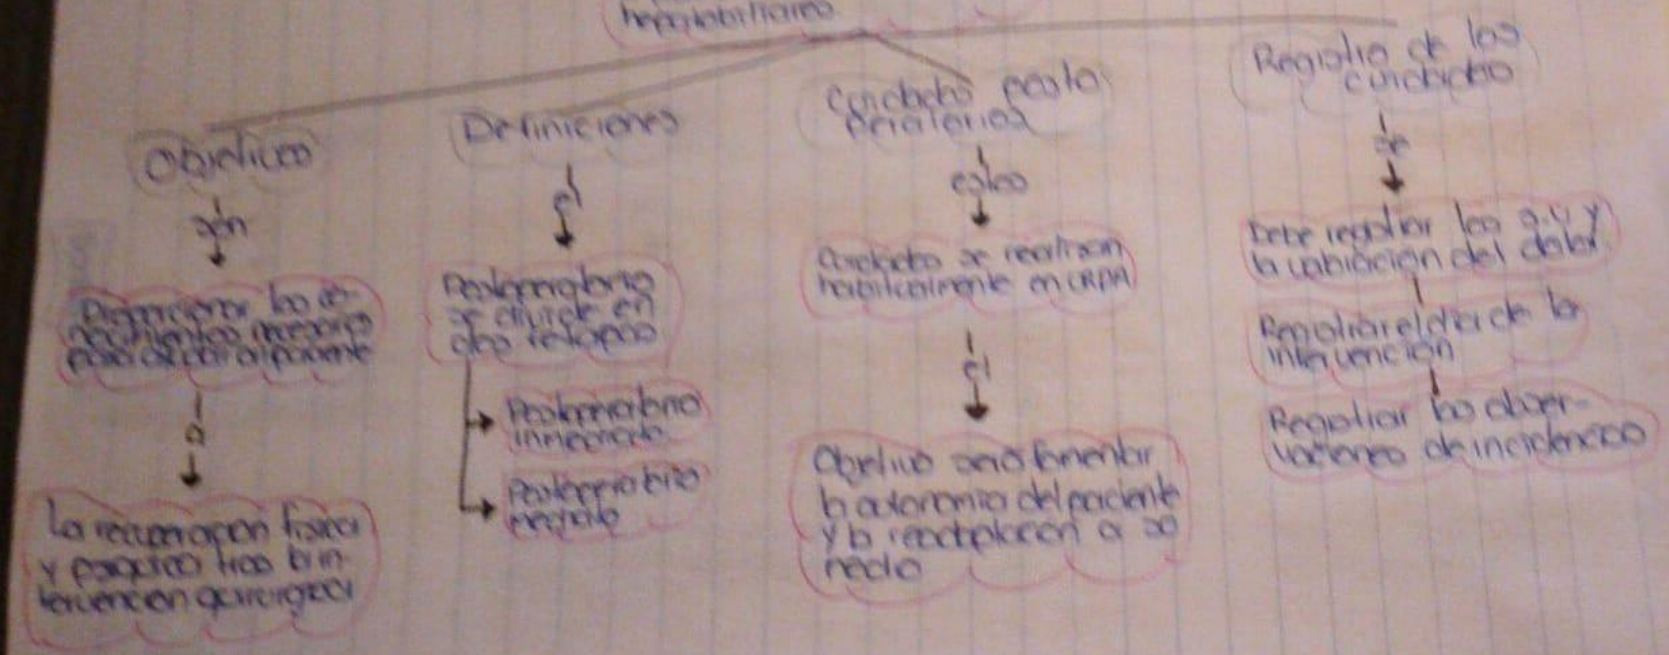 hepatobiliares
Objetivos
són
Proporcionar los co-
nocimientos necesarios
para al paciente
a
La recuperación fisica
y psiquica tras la in-
tervencion quirurgica
Definiciones
el
Postoperatorio
se divide en
dos etapas
Postoperatorio
inmediato
Postoperatorio
mediato
Cuidados posto
peratorios
estos
Cuidados se realizan
habitualmente en URPA
el
Objetivo será fomentar
la autonomia del paciente
y la readaptación a su
medio
Registro de los
cuidados
se
Debe registrar los y
la ubicación del dolor
Registrar el dia de la
intervención
Registrar las obser-
vaciones de incidencias